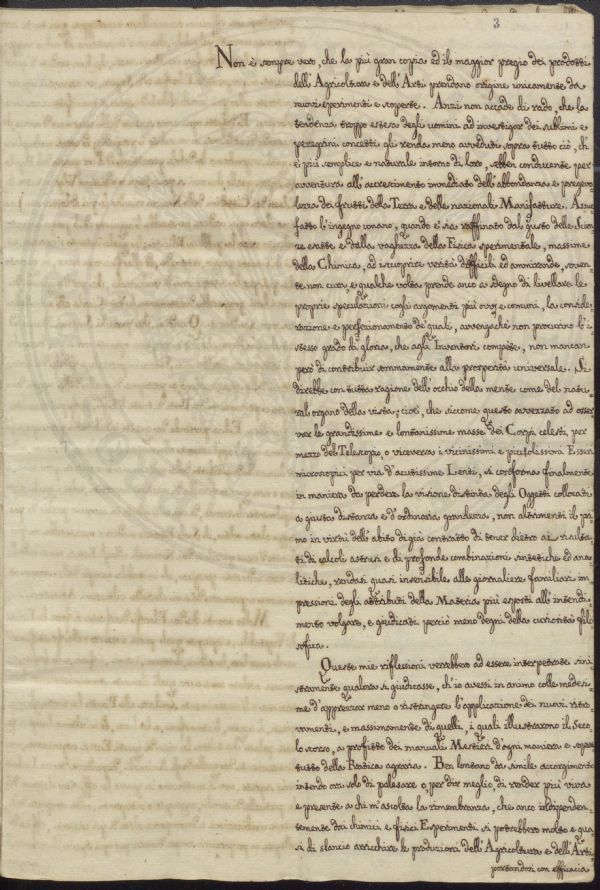 3
Non è sempre vero, che la più gran coppia ed il maggior pregio dei prodotti
dell'Agricoltura e dell'Arti prendano origine unicamente da
nuovi sperimenti e scoperte. Anzi non accade di rado, che la
tendenza troppo estesa degli uomini ad investigar dei sublimi e
peregrini concetti gli renda meno avveduti sopra tutto ciò, ch'
è più semplice e naturale intorno di loro, sebben conducente per
avventura all'accrescimento immediato dell'abbondanza e pregevo
lezza dei frutti della Terra e delle nazionali Manifatture. Assue
fatto l'ingegno umano, quando e' sia raffinato dal gusto delle Scien
ze esatte e dalla vaghezza della Fisica sperimentale, massime
della Chimica, ad iscuoprire verità difficili ed ammirande, soven
te non cura, e qualche volta prende anco a sdegno di livellare le
proprie speculazioni cogli argomenti più ovvj e comuni, la conside
razione e perfezionamento de' quali, avvengachè non procurino l'i
stesso grado di gloria, che agl'Inventori compete, non mancan
però di contribuir sommamente alla prosperità universale. Si
direbbe con tutta ragione dell'occhio della mente come del natu
ral organo della vista; cioè, che siccome questo avvezzato ad osser
var le grandissime e lontanissime masse dei Corpi celesti, per
mezzo del Telescopio, o viceversa i vicinissimi e piccolissimi Esseri
microscopici per via d'acutissime Lenti, si conforma finalmente
in maniera da perdere la visione distinta degli Oggetti collocati
a giusta distanza e d'ordinaria grandezza, non altrimenti il pri
mo in virtù dell'abito di già contratto di tener dietro ai risulta
ti di calcoli astrusi e di profonde combinazioni sintetiche ed ana
litiche, rendasi quasi insensibile alle giornaliere familiari im
pressioni degli attributi della Materia più esposti all'intendi
mento volgare, e giudicati perciò meno degni della curiosità filo
sofica.
Queste mie riflessioni verrebbero ad essere interpetrate sini
stramente qualora si giudicasse, ch'io avessi in animo colle medesi
me d'apprezzar meno o ristringere l'applicazione dei nuovi ritro
vamenti, e massimamente di quelli, i quali illustrarono il Seco
lo scorso, a profitto dei manuali Mestieri d'ogni maniera e sopra
tutto della Pratica agraria. Ben lontano da simile accorgimento
intendo ora solo di palesare o, per dir meglio, di render più viva
e presente a chi m'ascolta la rimembranza, che anco indipenden
temente dai chimici e fisici Esperimenti si potrebbero molto e qua
si di slancio arricchire le produzioni dell'Agricoltura e dell'Arti
portandosi con efficacia